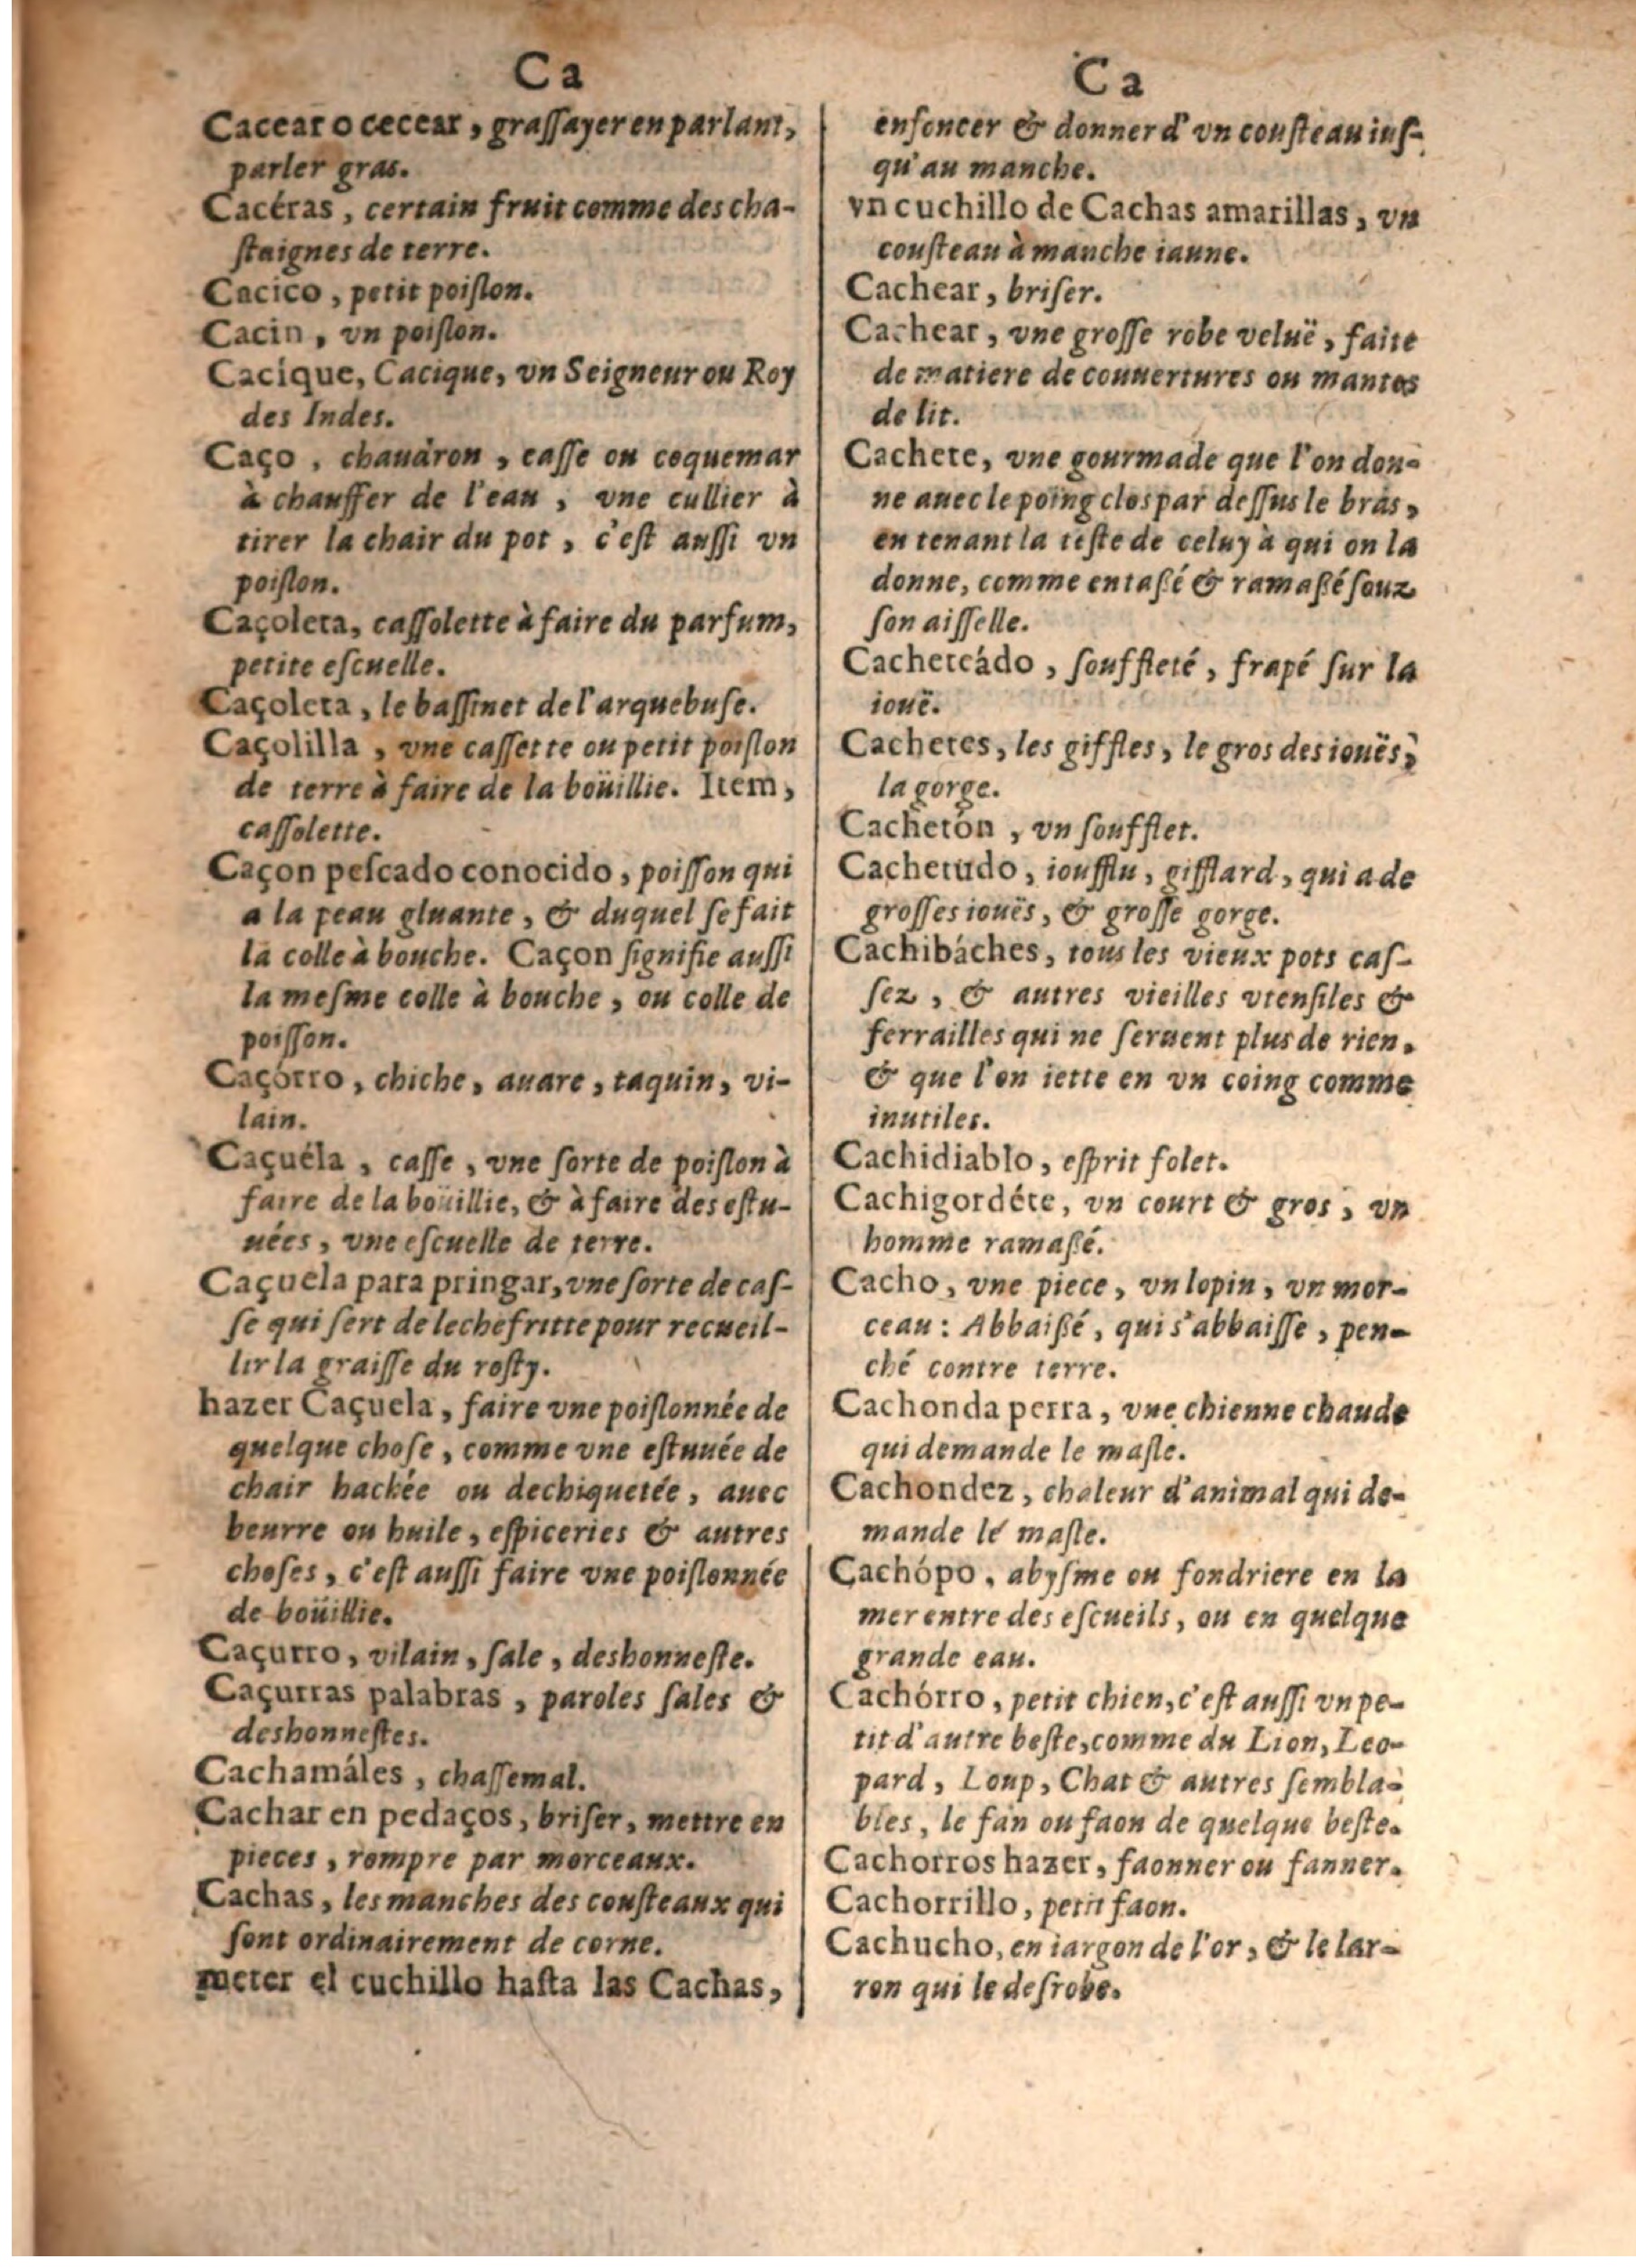 Ca
Cacear o cecear, graſſayer en parlant,
parler gras.
Cacéras, certain fruit comme des cha-
ſtaignes de terre.
Cacico, petit poiſlon.
Cacin, vn poiſlon.
Cacíque, Cacique, vn Seigneur ou Roy
des Indes.
Caço, chaudron, caſſe ou coquemar
à chauffer de l'eau, vne cullier à
tirer la chair du pot, c'eſt auſſi vn
poiſlon.
Caçoleta, caſſolette à faire du parfum,
petite eſcuelle.
Caçoleta, le baſſinet de l'arquebuſe.
Caçolilla, vne caſſette ou petit poiſlon
de terre à faire de la boüillie. Item,
caſſolette.
Caçon peſcado conocido, poiſſon qui
a la peau gluante, & duquel ſe fait
la colle à bouche. Caçon ſignifie auſſi
la meſme colle à bouche, ou colle de
poiſſon.
Caçórro, chiche, auare, taquin, vi-
lain.
Caçuéla, caſſe, vne ſorte de poiſlon à
faire de la boüillie, & à faire des eſtu-
uées, vne eſcuelle de terre.
Caçuela para pringar, vne ſorte de caſ-
ſe qui ſert de lechefritte pour recueil-
lir la graiſſe du roſty.
hazer Caçuela, faire vne poiſlonnée de
quelque choſe, comme vne eſtuuée de
chair hachée ou dechiquetée, auec
beurre ou huile, eſpiceries & autres
choſes, c'eſt auſſi faire vne poiſlonnée
de boüillie.
Caçurro, vilain, ſale, deshonneſte.
Caçurras palabras, paroles ſales &
deshonneſtes.
Cachamáles, chaſſemal.
Cachar en pedaços, briſer, mettre en
pieces, rompre par morceaux.
Cachas, les manches des couſteaux qui
ſont ordinairement de corne.
meter el cuchillo haſta las Cachas,
Ca
enfoncer & donner d'vn couſteau iuſ-
qu'au manche.
vn cuchillo de Cachas amarillas, vn
couſteau à manche iaune.
Cachear, briſer.
Cachear, vne groſſe robe veluë, faite
de matiere de couuertures ou mantes
de lit.
Cachete, vne gourmade que l'on don-
ne auec le poing clos par deſſus le bras,
en tenant la teſte de celuy à qui on la
donne, comme entaßé & ramaßé ſouz
ſon aiſſelle.
Cacheteádo, ſouffleté, frapé ſur la
iouë.
Cachetes, les giffles, le gros des iouës,
la gorge.
Cachetón, vn ſoufflet.
Cachetudo,ioufflu, gifflard, qui a de
groſſes iouës, & groſſe gorge.
Cachibáches, tous les vieux pots caſ-
ſez, & autres vieilles vtenſiles &
ferrailles qui ne ſeruent plus de rien,
& que l'on iette en vn coing comme
inutiles.
Cachidiablo, eſprit folet.
Cachigordéte, vn court & gros, vn
homme ramaßé.
Cacho, vne piece, vn lopin, vn mor-
ceau: Abbaißé, qui s'abbaiſſe, pen-
ché contre terre.
Cachonda perra, vne chienne chaude
qui demande le maſle.
Cachondez, chaleur d'animal qui de-
mande le maſle.
Cachópo, abyſme ou fondriere en la
mer entre des eſcueils, ou en quelque
grande eau.
Cachórro, petit chien, c'eſt auſſi vn pe-
tit d'autre beſte, comme du Lion, Leo-
pard, Loup, Chat & autres ſembla-
bles, le fan ou faon de quelque beſte.
Cachorros hazer, faonner ou fanner.
Cachorrillo, petit faon.
Cachucho, en iargon de l'or, & le lar-
ron qui le deſrobe.